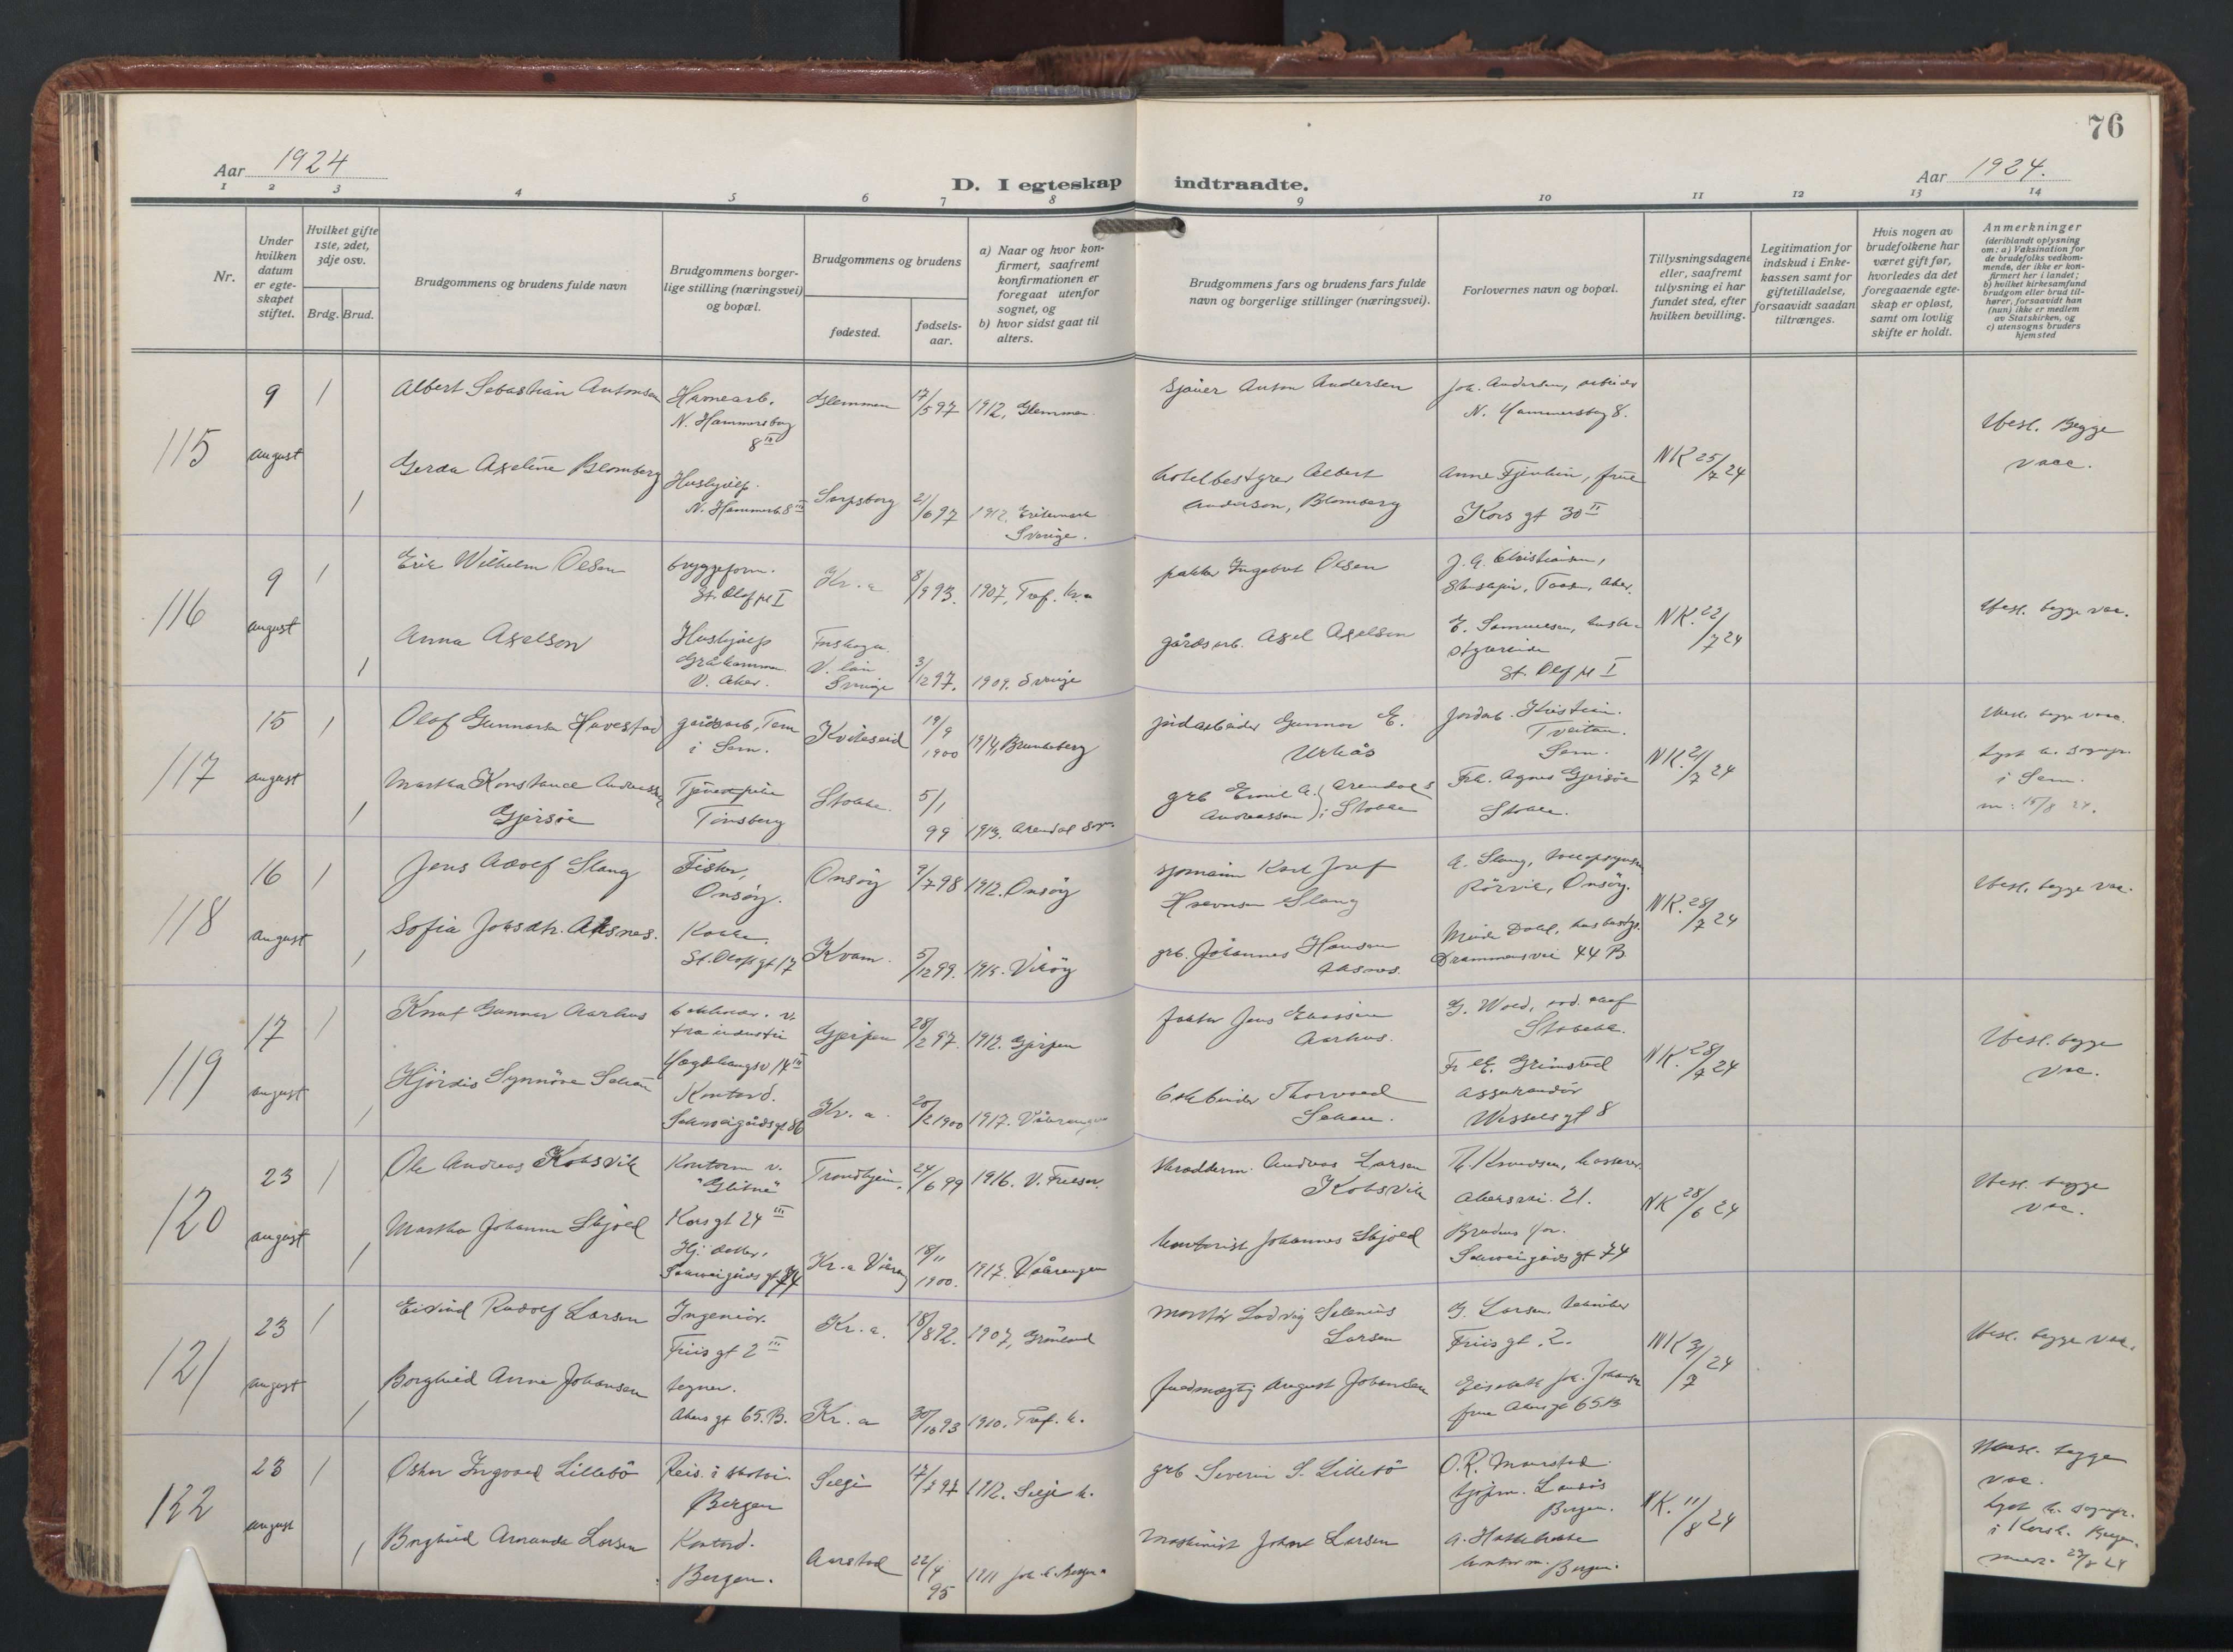 76
Aar 1924
D. I egteskap indtraadte.
Aar 1924.
1 2 3 4 5 6 7 8 9 10 11 12 13 14
Nr.
Under
hvilken
datum
er egte-
skapet
stiftet.
Hvilket gifte
1ste, 2det,
3dje osv.
Brdg. Brud.
Brudgommens og brudens fulde navn
Brudgommens borger-
lige stilling (næringsvei)
og bopæl.
Brudgommens og brudens
fødested.
fødsels-
aar.
a) Naar og hvor kon-
firmert, saafremt
konfirmationen er
foregaat utenfor
sognet, og
b) hvor sidst gaat til
alters.
Brudgommens fars og brudens fars fulde
navn og borgerlige stillinger (næringsvei).
Forlovernes navn og bopæl.
Tillysningsdagene
eller, saafremt
tillysning ei har
fundet sted, efter
hvilken bevilling.
Legitimation for
indskud i Enke-
kassen samt for
giftetilladelse,
forsaavidt saadan
tiltrænges.
Hvis nogen av
brudefolkene har
været gift før,
hvorledes da det
foregaaende egte-
skap er opløst,
samt om lovlig
skifte er holdt.
Anmerkninger
(deriblandt oplysning
om: a) Vaksination for
de brudefolks vedkom-
mende, der ikke er kon-
firmert her i landet;
b) hvilket kirkesamfund
brudgom eller brud til-
hører, forsaavidt han
(hun) ikke er medlem
av Statskirken, og
c) utensogns bruders
hjemsted
115
9 august
1
Albert Sebastian Antonsen
Havnearb.
N. Hammersborg
8 III
Glemmen
17/5 97
1912, Glemmen.
Sjauer Anton Andersen
Joh. Andersen, arbeider
N. Hammersborg 8.
NK 25/7 24
Ubesl. Begge
vacc.
1
Gerda Axeline Blomberg
Hushjelp.
N. Hammersb. 8 III
Sarpsborg
21/6 97
1912.
Sverige.
Hotelbestyrer Albert
Anderson, Blomberg
frue
Kors gt 30 II
116
9 august
1
Erik Wilhelm Olsen
bryggeform.
St. Olafs pl I
Kr. a
8/9 93.
1907, Tref. Kr. a
pakker Ingebret Olsen
J. G. Christiansen,
Taasen, Aker.
NK. 22/7 24
Ubesl. begge vac.
1
Anna Axelson
Hushjælp
Gråkammen
V. Aker.
V. län
Sverige
3/12 97.
1909. Sverige
gårdsarb. Axel Axelson
E. Samuelsen, husbe-
styrerinde
St. Olafs pl I
117
15 august
1
Olaf Gunnarsen Havestad
gårdsarb, Tem
i Sem.
Kviteseid
19/9
1900
1914, Brunkeberg
jordarbeider Gunnar E.
Urkås
Jordarb. Kristian
Tveitan
Sem.
NK. 21/7 24
Ubesl. begge vacc.
lyst av sognepr.
i Sem.
m: 15/8 24.
1
Martha Konstance Andreassen
Gjersøe
Tjenestepike
Tønsberg
Stokke.
5/1
99
1913. Arendal sor.
grb Emil A. Andreassen } Arendal i Stokke
Frk. Agnes Gjersøe
Stokke.
118
16 august
1
Jens Adolf Slang
Fisker,
Onsøy.
Onsøy
9/7 98
1912. Onsøy
sjømann Karl Josef
Slang
A. Slang, tollopsynsm
Rörvik, Onsøy.
NK. 28/7 24
Ubesl. begge vac.
1
Sofia Johsdtr. Aksnes.
Kokke.
St. Olafs gt 17
Kvam.
5/12 99.
1915. Vikøy
grb. Johannes Hansen
Aksnes.
Dahl, husbestyr.
Drammensvei 44 B.
119
17 august
1
Knut Gunnar Aarhus
bokholder v.
træindustri
14 III
Gjerpen
28/2 97.
1912. Gjerpen
faktor Jens Eliassen
Aarhus.
G. Wold,
Stabekk.
NK. 28/7 24
Ubesl. begge
vac.
1
Hjördis Synnöve Schou
Kontord.
Schweigårdsgt 86
Kr. a.
20/2 1900
1917. Vålerengen
bokbinder Thorvald
Schou.
Fr. E. Grimstad
assurandør
Wessels gt 8
120
23 august
1
Ole Andreas Kobsvik
Kontorm v.
"Glitne"
Kors gt 24 III
Trondhjem.
24/6 99
1916. V. Frelser.
skræddrm. Andreas Larsen
Kobsvik
Th. Knudsen, kasserer
Akersvei. 21.
NK 28/6 24
Ubesl. begge
vac.
1
Martha Johanne Skjold
Hj. datter,
Schweigårds gt 74
Kr. a Våleng
18/11
1900.
1917. Vålerengen
kontorist Johannes Skjold
Brudens far.
Schweigårds gt 74
121
23 august
1
Eivind Rudolf Larsen
Ingeniør.
Friis gt 2 III
Kr. a.
18/8 92.
1907, Grønland
Montør Ludvig Selenius
Larsen
G. Larsen, tekniker
Friis gt. 2.
NK 3/7 24
Ubesl. begge vac.
1
Borghild Anna Johansen
tegner.
Akers gt 65. B.
Kr. a
30/10 93
1910. Tref. k.
fuldmægtig August Johansen
Joh. Johansen
frue Akersgt 65 B
122
23 august
1
Oskar Ingvald Lillebö
Reis. i skotöi.
Bergen
Selje
17/7 97
1912. Selje k.
grb Severin S. Lillebö
O. R. Maurstad.
Landås
Bergen.
NK. 11/8 24
Ubesl. begge
vac.
lyst av sognepr.
i Korsk. Bergen.
23/8 24
1
Borghild Amanda Larsen
Kontord.
Bergen.
Aarstad
22/4
95
1911 Joh. k. Bergen
Maskinist Johan Larsen
kontorm. Bergen.